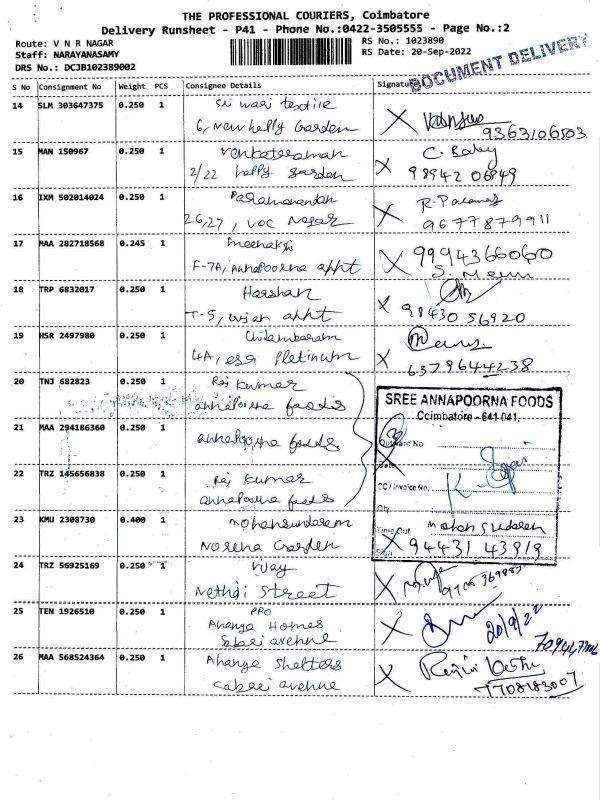 THE PROFESSIONAL COURIERS, Coimbatore
Delivery Runsheet - P41 - Phone No.:0422-3505555 - Page No.:2
Route: V N R NAGAR
RS No.: 1023890
Staff: NARAYANASAMY
RS Date: 20-Sep-2022
DRS No.: DCJB102389002
DOCUMENT DELIVERY
S No Consignment No Weight PCS Consignee Details Signature
14 SLM 303647375 0.250 1 Sri Wari textile
6, New happy Garden 9363106503
15 MAN 150967 0.250 1 Venkataraman C. Baby
2/22 happy garden 98942 06849
16 IXM 502014024 0.250 1
26,27, VOC Nagar 9677879911
17 MAA 282718568 0.245 1 meenakshi 9994366060
F-7A, Annapoorna appt
18 TRP 6832017 0.250 1 Harshan
T-5, appt 98430 56920
19 HSR 2497980 0.250 1 Chidambaram
4A, essa Platinum 6379644238
20 TNJ 682823 0.250 1 Raj Kumar
annapoorna foods
SREE ANNAPOORNA FOODS
Coimbatore - 641 041.
21 MAA 294186360 0.250 1 annapoorna foods
Date
22 TRZ 145656838 0.250 1 Raj Kumar
DC / Invoice No.
annapoorna foods
Qty
23 KMU 2308730 0.400 1 mohansundaram
Time Out
Norena Garden 94431 43919
Sign
24 TRZ 56925169 0.250 1 Vijay
Nethaji Street
25 TEN 1926510 0.250 1 PRO
Ahanya Homes 20/9/22
Sabari avenue
26 MAA 568524364 0.250 1 Ahanya Shelters
Sabari avenue 7708183007